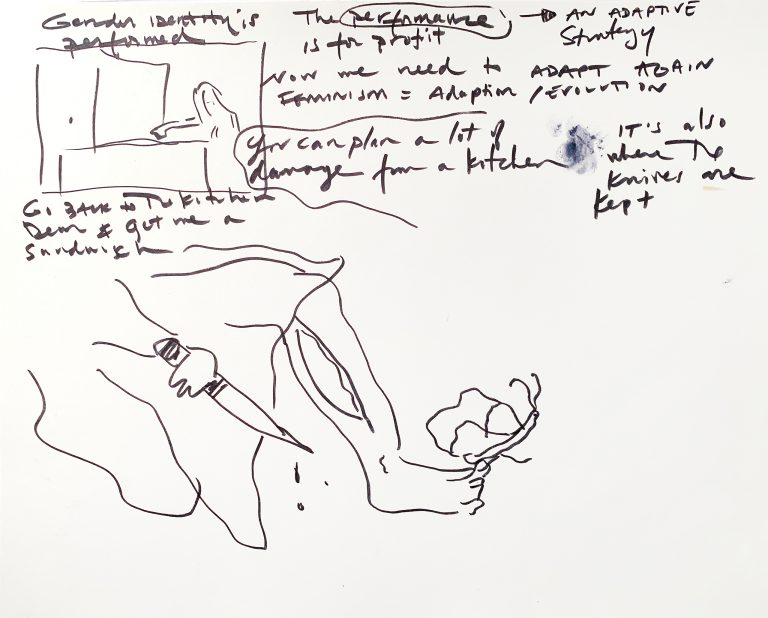 Gender identity is
performed
The performance
is for profit
AN ADAPTIVE
Strategy
Now we need to ADAPT AGAIN
FEMINISM = Adaption / EVOLUTION
You can plan a lot of
damage from a kitchen
IT'S also
where The
knives are
kept
Go BACK to The kitchen
Dear & get me a
Sandwich